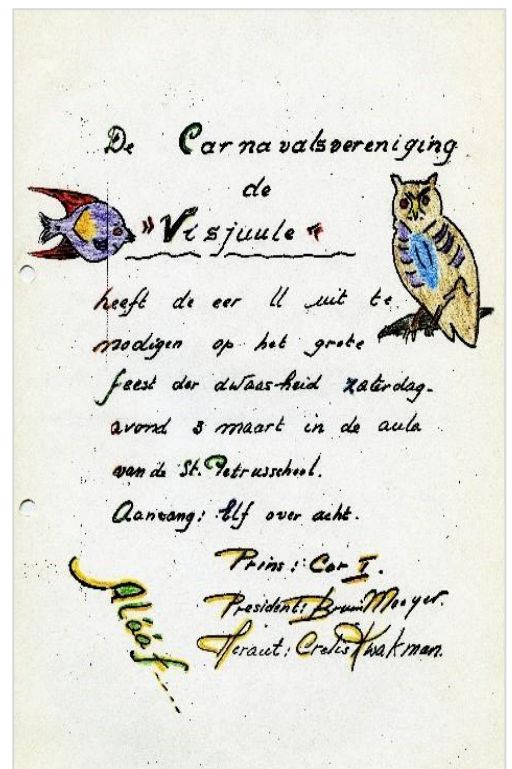 De Carnavalsvereniging
de
"Visjuule"
heeft de eer U uit te
nodigen op het grote
feest der dwaasheid zaterdag-
avond 3 maart in de aula
van de St. Petrusschool.
Aanvang: Elf over acht.
Prins: Cor I.
President: Bruin Mooyer.
Heraut: Crelis Kwakman.
Alááf....